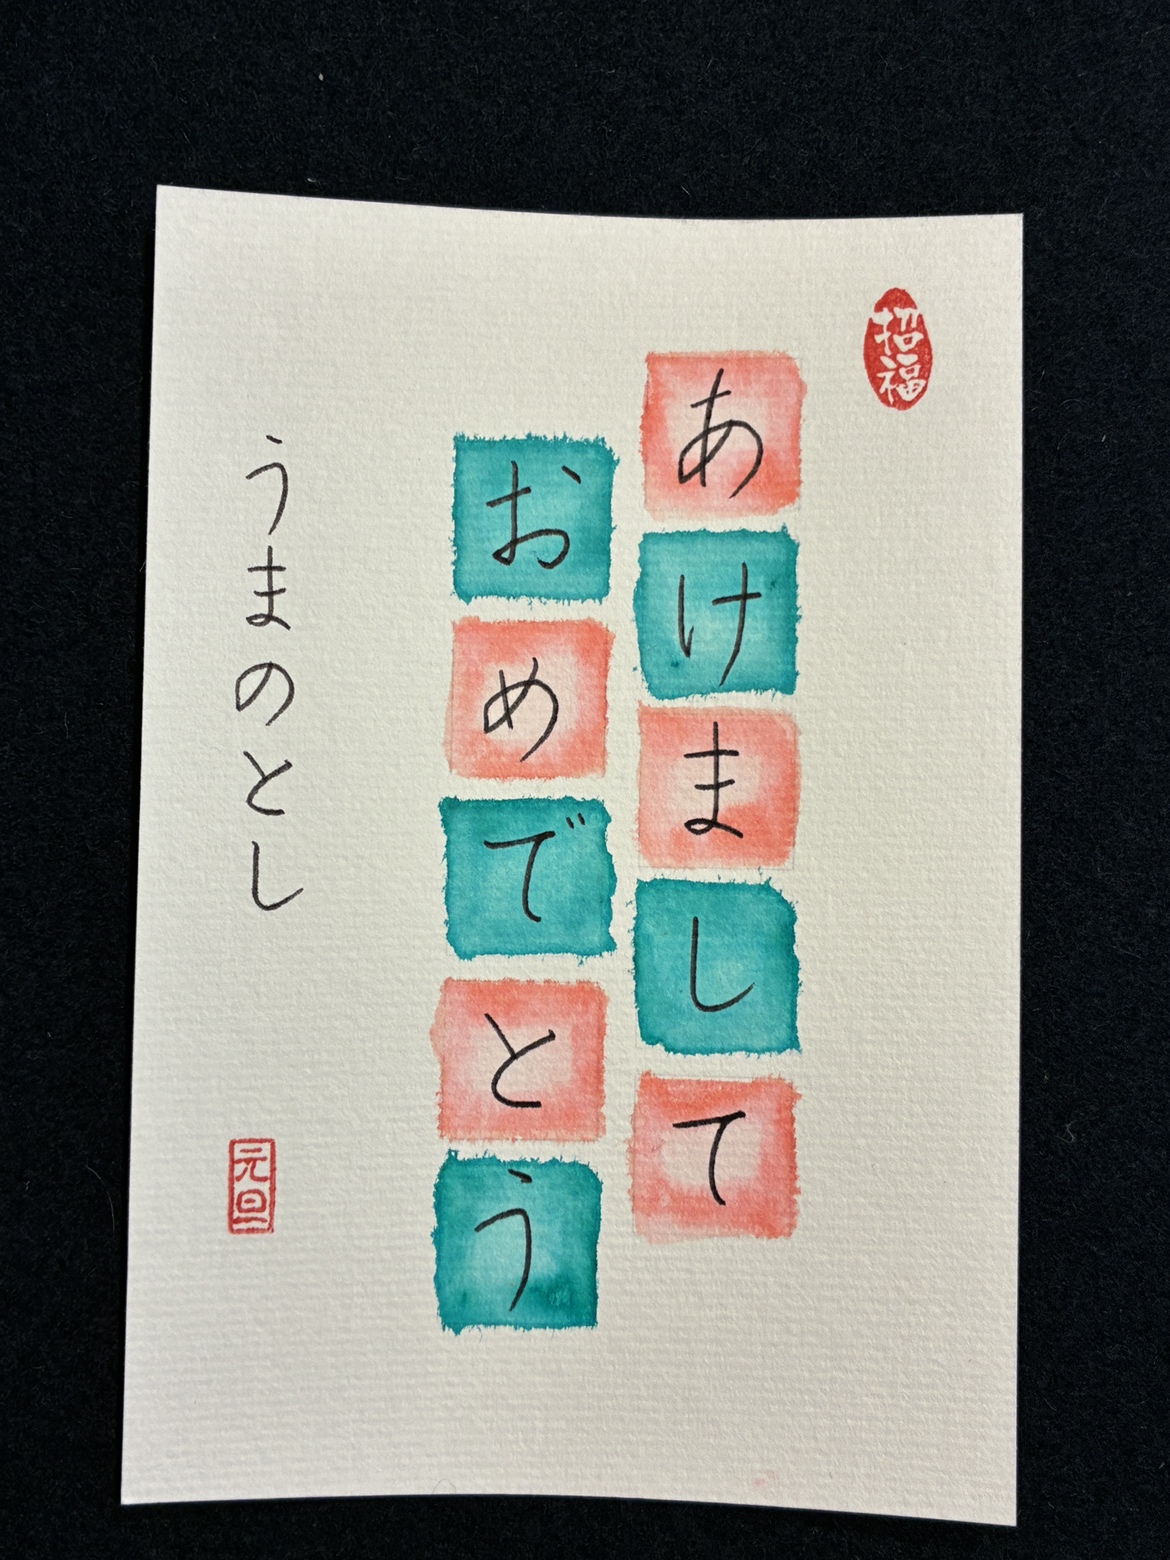 招福
あけまして
おめでとう
うまのとし
元旦